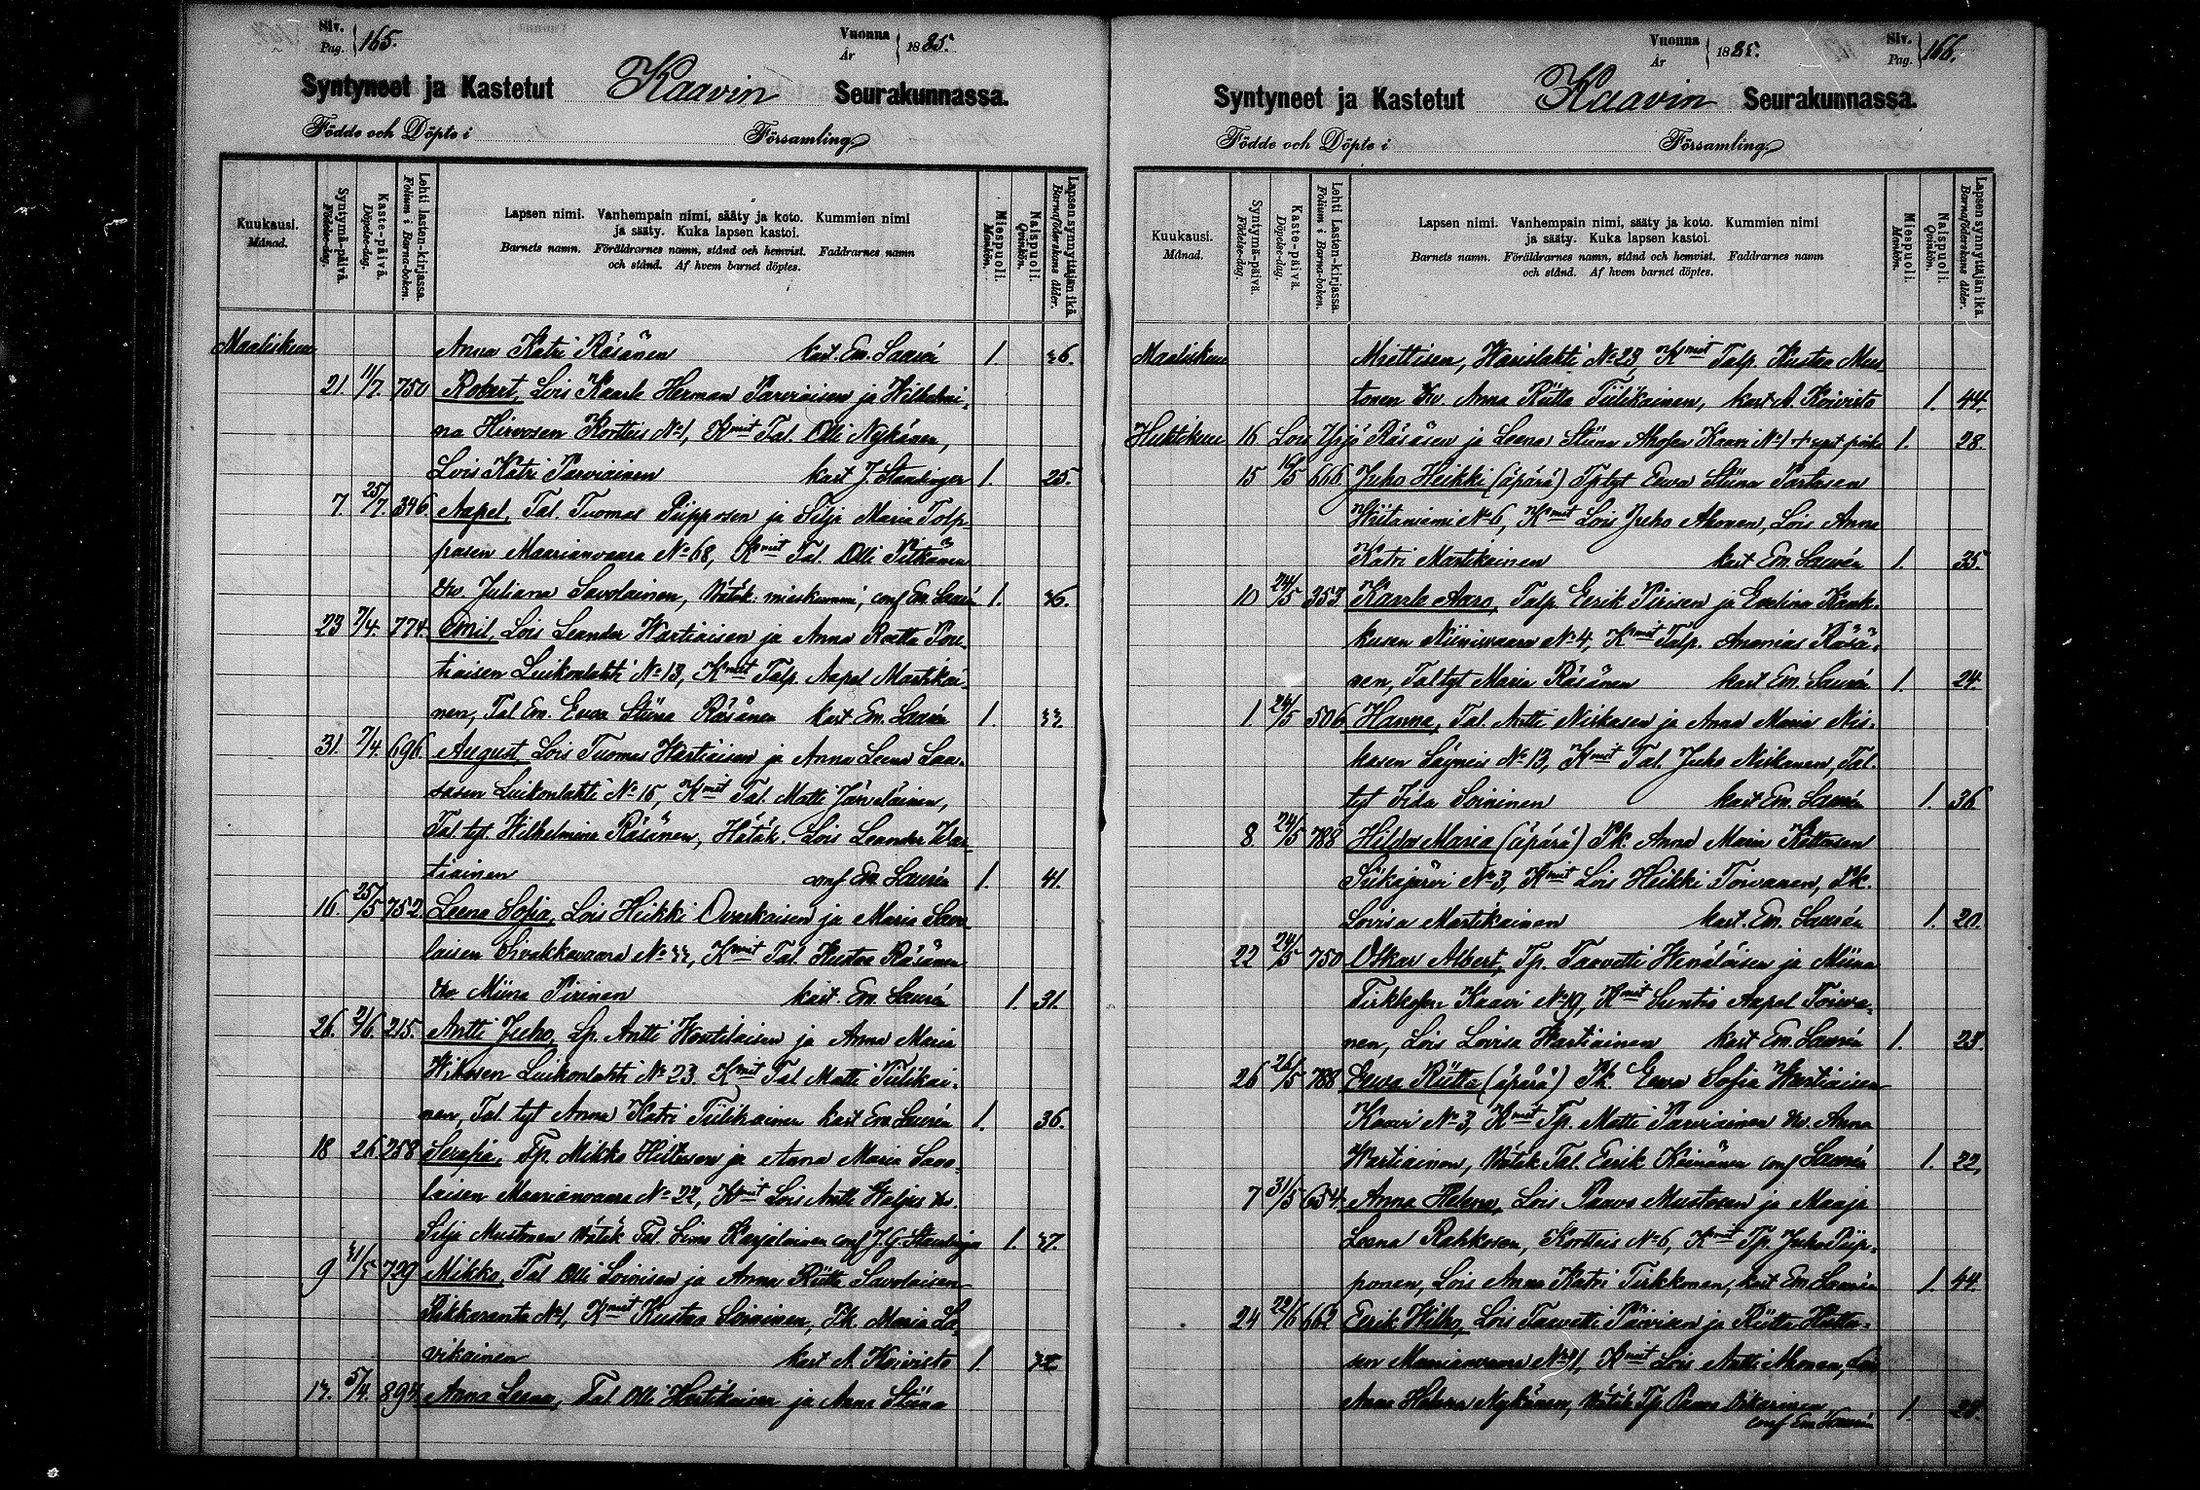 Siv. Pag. 165.
Vuonna År 1885.
Syntyneet ja Kastetut Kaavin Seurakunnassa.
Födde och Döpte i Församling.
Kuukausi. Månad.
Syntymä-päivä. Födelse-dag.
Kaste-päivä. Döpelse-dag.
Lehti lasten-kirjassa. Folium i Barna-boken.
Lapsen nimi. Vanhempain nimi, sääty ja koto. Kummien nimi
ja sääty. Kuka lapsen kastoi.
Barnets namn. Föräldrarnes namn, stånd och hemvist. Faddrarnes namn
och stånd. Af hvem barnet döptes.
Miespuoli. Mankön.
Naispuoli. Qvinkön.
Lapsen synnyttäjän ikä Barnaföderskans ålder.
Maaliskuu Anna Katri Räsänen kast. Em. Laurén 1. 36.
21. 11/7. 750 Robert, Lois Kaarle Herman Parviaisen ja Wilhelmi-
na Hirvosen Kortteis No 1, Kmit Tal. Olli Nykänen,
Lois Katri Parviainen kast J. Staudinger 1. 25.
7. 25/7. 346 Aapel, Tal. Tuomas Piipposen ja Silja Maria Tolp-
pasen Maarianvaara No 68, Kmit Tal. Olli Pitkänen
Juliana Savolainen, conf Em Laurén 1. 36.
23 7/4. 774. Emil, Lois Leander Wartiaisen ja Anna Reetta Pou-
tiaisen Luikonlahti No 13, Kmit Talp Aapel Martikai-
nen, Tal Em. Eeva Stiina Räsänen kast Em. Laurén 1. 33.
31. 7/4. 696. August, Lois Tuomas Wartiaisen ja Anna Leena Laa-
sasen Luikonlahti No 15, Kmit Tal. Matti Jäuveläinen,
Tal. tyt. Wilhelmina Räsänen, Hätäk. Lois Leander War-
tiainen conf Em. Laurén 1. 41.
16. 25/5 752. Leena Sofia, Lois Heikki Ovaskaisen ja Maria Savo-
laisen Sivakkavaara No 33, Kmit Tal. Kustaa Räsänen
vv. Miina Pirinen kast. Em. Laurén 1. 31.
26. 21/6. 215. Antti Juho, Lp. Antti Woutilaisen ja Anna Maria
Luikonlahti No 23. Kmit Tal Matti Tiilikai-
nen, Tal. tyt Anna Katri Tiilikainen kast Em Laurén 1. 36.
18 26 258 Serafia, Tp. Mikko Hiltusen ja Anna Maria Savo-
laisen Maarianvaara No 22, Kmit Lois Antti vv.
Silja Mustonen Hätäk Tal. Simo Karjalainen conf J. G. Staudinger 1. 37.
9 31/5 729 Mikko, Tal Olli Soinisen ja Anna Riitta Savolaisen
Rikkaranta No 1, Kmit Kustaa Soininen, Pk. Maria La-
vikainen kast A. Koivisto 1.
13. 5/4. 893. Anna Leena, Tal. Olli ja Anna Stiina
Vuonna År 1885.
Siv. Pag. 166.
Syntyneet ja Kastetut Kaavin Seurakunnassa.
Födde och Döpte i Församling.
Kuukausi. Månad.
Syntymä-päivä. Födelse-dag.
Kaste-päivä. Döpelse-dag.
Lehti lasten-kirjassa. Folium i Barna-boken.
Lapsen nimi. Vanhempain nimi, sääty ja koto. Kummien nimi
ja sääty. Kuka lapsen kastoi.
Barnets namn. Föräldrarnes namn, stånd och hemvist. Faddrarnes namn
och stånd. Af hvem barnet döptes.
Miespuoli. Mankön.
Naispuoli. Qvinkön.
Lapsen synnyttäjän ikä Barnaföderskans ålder.
Maaliskuu Miettisen, Harislahti No 23, Kmit Talp. Kustaa Mus-
tonen vv. Anna Riitta Tiilikainen, kast A. Koivisto 1. 44.
Huhtikuu 16 Lois Yrjö Räsäsen ja Leena Stiina Ahosen Kaavi No 1 1. 28.
15 10/5 666. Juho Heikki (äpärä) Tptyt Eeva Stiina Partasen
No 6, Kmit Lois Juho Ahonen, Lois Anna
Katri Martikainen kast Em. Laurén 1. 35.
10 24/5 353 Kaarle Aaro, Talp. Eerik Pirisen ja Evelina Kauk-
kusen Niinivaara No 4, Kmit Talp. Ananias Räsä-
nen, Taltyt Maria Räsänen kast Em. Laurén 1. 24.
1 24/5 506 Hanna, Tal. Antti Niskasen ja Anna Maria Nis-
kasen Säyneis No 13, Kmit Tal. Juho Niskanen, Tal.
tyt Iida Soininen kast Em. Laurén 1. 36
8 24/5 788 Hilda Maria (äpärä) Pk. Anna Maria
Siikajärvi No 3, Kmit Lois Heikki Toivanen, Pk.
Lovisa Martikainen kast. Em. Laurén 1. 20.
22 24/5 750 Oskar Albert, Tp. Taavetti Henäläisen ja Miina
Tirkkosen Kaavi No 19, Kmit Suntio Aapel Toiva-
nen, Lois Lovisa Wartiainen kast Em. Laurén 1. 23.
26 26/5 788 Eeva Riitta (äpärä) Pk. Eeva Sofia Wartiaisen
Kaavi No 3, Kmit Tp. Matti Parviainen vv. Anna
Wartiainen, Hätäk Tal. Eerik Keinänen conf Laurén 1. 22.
7 31/5 654. Anna Helena, Lois Paavo Mustosen ja Maaja
Leena Rahkosen, Kortteis No 6, Kmit Tp. Juho Piip-
ponen, Lois Anna Katri Tirkkonen, kast Em. Laurén 1. 44.
24 22/6 662 Eerik Wilho, Lois Taavetti ja Riitta
No 21, Kmit Lois Antti Ahonen, Lois
Anna Helena Nykänen, Hätäk Tp. Paavo
conf Em Laurén 1. 28.